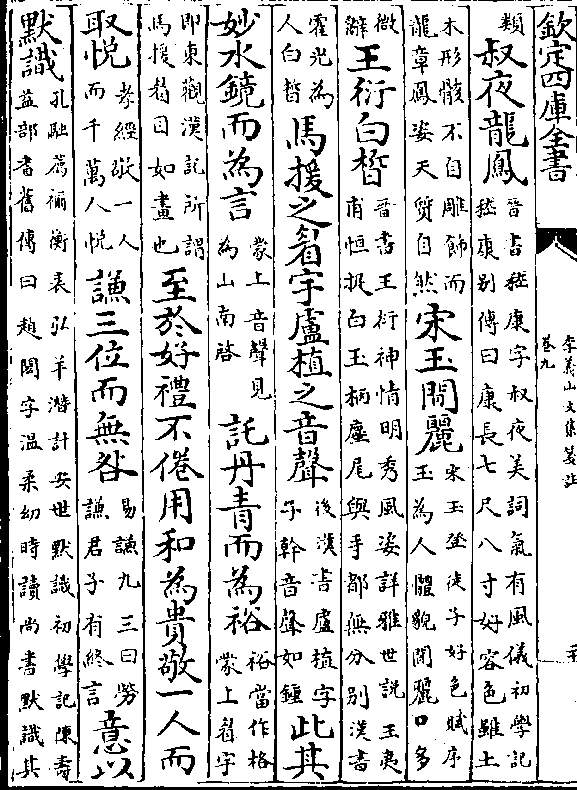 欽定四庫全書
李義山文集箋註
卷九
類叔夜龍鳳晉書嵇康字叔夜美詞氣有風儀初學記嵇康別傳曰康長七尺八寸好容色雖土
木形骸不自雕飾而龍章鳳姿天質自然宋玉閒麗宋玉登徒子好色賦序玉為人體貌閒麗口多
微辭王衍白皙晉書王衍神情明秀風姿詳雅世說王夷甫恒捉白玉柄麈尾與手都無分別漢書
霍光為人白皙馬援之眉宇盧植之音聲後漢書盧植字子幹音聲如鍾此其
妙水鏡而為言蒙上音聲見為山南啓託丹青而為裕裕當作格蒙上眉宇
即東觀漢記所謂馬援眉目如畫也至於好禮不倦用和為貴敬一人而
取悅孝經敬一人而千萬人悅謙三位而無咎易謙九三曰勞謙君子有終言意以
默識孔融薦禰衡表弘羊潛計安世默識初學記陳壽益部耆舊傳曰趙閎字溫柔幼時讀尚書默識其